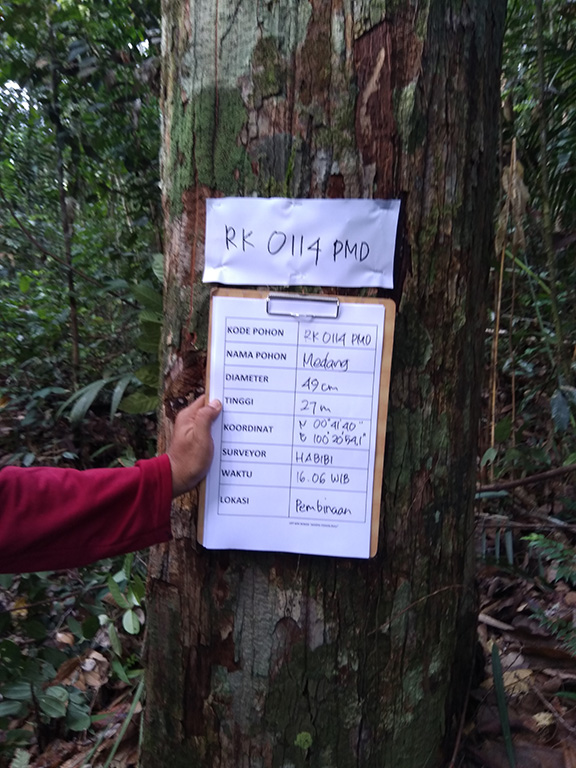 RK 0114 PMD
KODE POHON RK 0114 PMD
NAMA POHON Medang
DIAMETER 49 cm
TINGGI 27 m
KOORDINAT N 00°41'40"
E 100°20'54,1"
SURVEYOR HABIBI
WAKTU 16.06 WIB
LOKASI Pembinaan